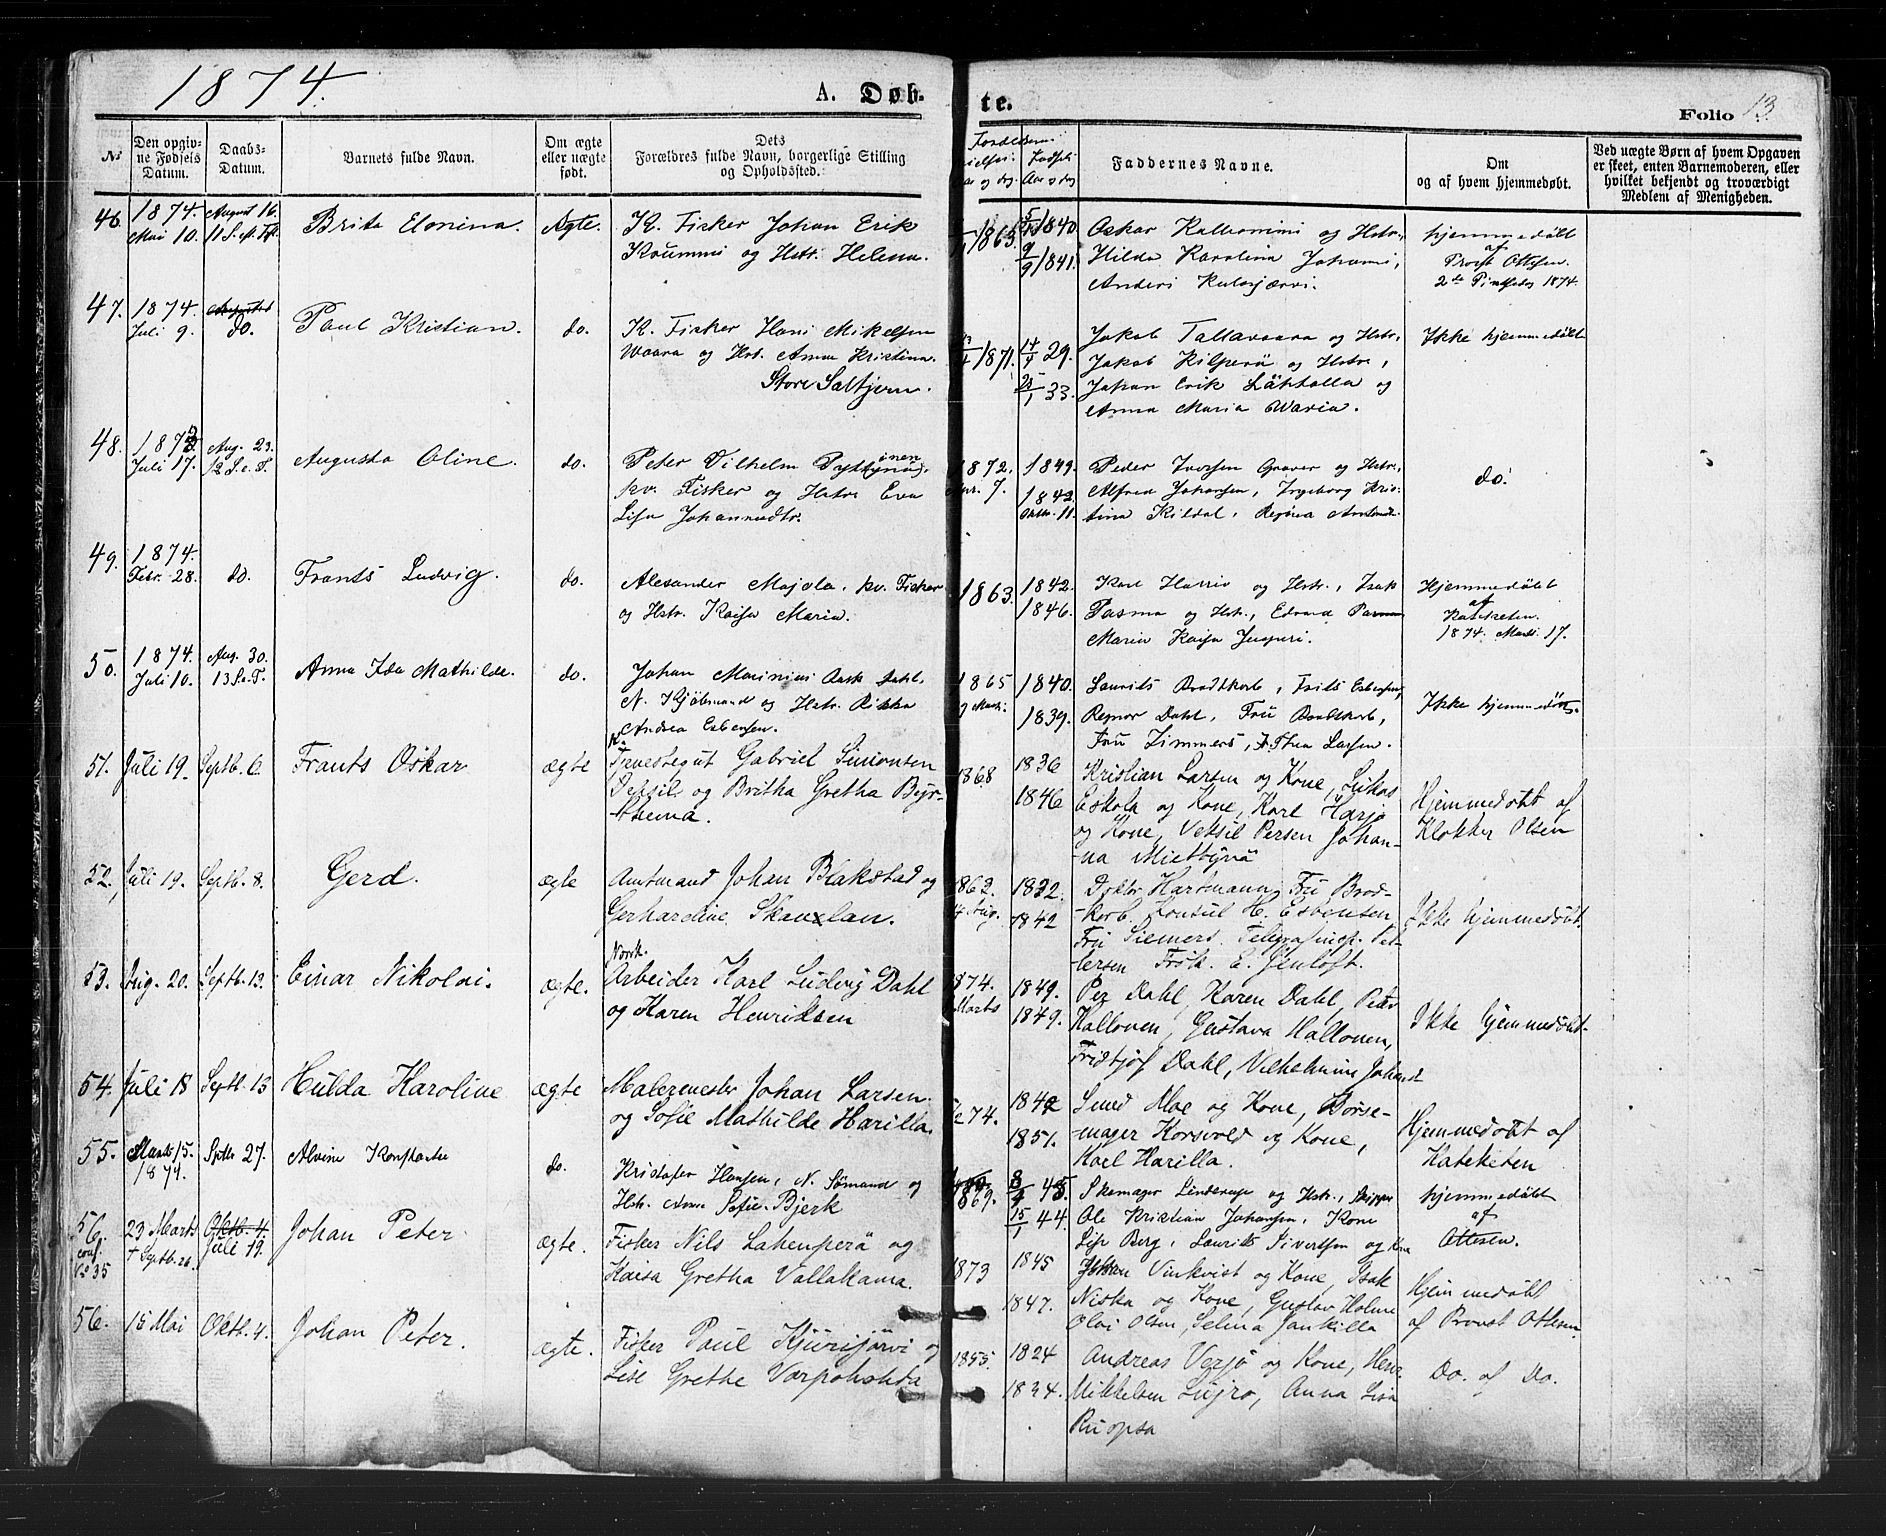 1874.
A. Døb-
te.
Folio 13.
No
Den opgiv-
ne Fødsels
Datum.
Daabs-
Datum.
Barnets fulde Navn.
Om ægte
eller uægte
født.
Dets
Forældres fulde Navn, borgerlige Stilling
og Opholdssted.
Faddernes Navne.
Om
og af hvem hjemmedøbt.
Ved uægte Børn af hvem Opgaven
er skeet, enten Barnemoderen, eller
hvilket bekjendt og troværdigt
Medlem af Menigheden.
46. 1874. Mai 10. August 16. 11 S. e. Tr. Brita Elonina. Ægte.
K. Fisker Johan Erik
Koummi og Hstr. Helena.
1865. 5/1840
9/9 1841.
Oskar Kallonimi og Hstr.,
Hilda Karolina Johani,
Anders Kulojærvi.
hjemmedøbt
af
Provst Ottesen.
2de Pintsedag 1874.
47. 1874. Juli 9. do. Paul Kristian. do.
K. Fisker Hans Mikelsen
Waara og Hst. Anna Kristina.
Store Saltjern.
/1871. 14/4 29.
25/1 33.
Jakob Tallavaara og Hstr.,
Jakob Kilperä og Hstr.,
Johan Erik Läkkolla og
Anna Maria Waria.
Ikke hjemmedøbt
48. 1873 Juli 17. Aug. 23. 12 S. e. T. Augusta Oline. do.
Peter Vilhelm
kv. Fisker og Hstr Eva
Lisa Johannesdtr.
1872. 7. 1849.
1842. Oktbr. 11.
Peder Iversen Graver og Hstr.,
Alfred Johansen, Ingeborg Kris-
tina Kildal, Regina
do.
49. 1874. Febr. 28. do. Frants Ludvig. do.
Alexander Majola, kv. Fisker
og Hstr. Kaisa Maria.
1863. 1842.
1846.
Karl Harrio og Hstr., Isak
Pasma og Hstr., Edvard Pasma
Maria Kaisa Junguri.
Hjemmedøbt
af
Kateketen
1874. Marts 17.
50. 1874. Juli 10. Aug. 30. 13 S. e. T. Anna Ida Mathilde. do.
Johan Marinius Aark Dahl,
N. Kjøbmand og Hstr. Rikka
Andrea Esbensen.
1865 1840.
1839.
Laurits Brodtkorb, Frits Esbensen,
Regnor Dahl, Fru Brodtkorb,
Fru Zimmers, Thea Larsen.
Ikke hjemmedøbt.
51. Juli 19. Septb. 6. Frants Oskar ægte
Gabriel Simonsen
og Britha Gretha Bijr-
1868 1836
1846
Kristian Larsen og Kone, Lukas
Eskola og Kone, Karl Harjo
og Kone, Veksil Persen Johan-
-na Miettynä
Hjemmedøbt af
Klokker Olsen
52. Juli 19. Septb. 8. Gerd. ægte
Amtmand Johan Blakstad og
Gerhardine Skanxlan.
1862. 14 Aug. 1832.
1842
Doktor Hartmann, Fru Brod-
-korb, Konsul H. Esbensen
Fru Siemers, Telegrafinsp. Pet-
-ersen Frøk. E. Jenloft.
Ikke hjemmedøbt.
53. Aug. 20. Septb. 13. Einar Nikolai. ægte.
Norsk.
Arbeider Karl Ludvig Dahl
og Karen Henriksen
1874. Marts 1849.
1849.
Per Dahl, Karen Dahl, Peter
Hallonen, Gustava Hallonen,
Fridtjof Dahl, Vilhelmine
Ikke hjemmedøbt.
54. Juli 18 Septb. 13 Hulda Karoline ægte
Malermester Johan Larsen
og Sofie Mathilde Harilla.
74. 1842
1851.
Smed Moe og Kone, Børse-
-mager Korsvold og Kone,
Karl Harilla.
Hjemmedøbt af
Kateketen
55. Marts 15. 1874. Sptbr 27. Alvine do.
Kristofer Hansen, N. Sømand og
Hstr. Anna Sofie Bjerk
1869. 8/9 43.
15/1 44.
Skomager Linderup og Hstr., Skipper
Ole Kristian Johansen, Kone
Lise Berg, Laurits Sivertsen og Kone
hjemmedøbt
af
Ottesen.
56. conf. No 35 23 Marts † Septb. 26. Oktb. 4. Juli 19. Johan Peter. ægte.
Fisker Nils Lakenperä og
Kaisa Gretha Vallakama.
1873 1845
1847.
Johan Vinkvist og Kone, Isak
Niska og Kone, Gustav Holme
Olai Olsen, Selma Jankilla
Hjemmedøbt
af Provst Ottesen
56. 15 Mai Oktb. 4. Johan Peter. ægte.
Fisker Paul Kjurijärvi og
Lise Grethe Varpohohta
1855. 1824
1834.
Andreas Verjö og Kone, Hene
Mikkelsen Lujro, Anna Lisa
Ruopsa
Do. af Do.